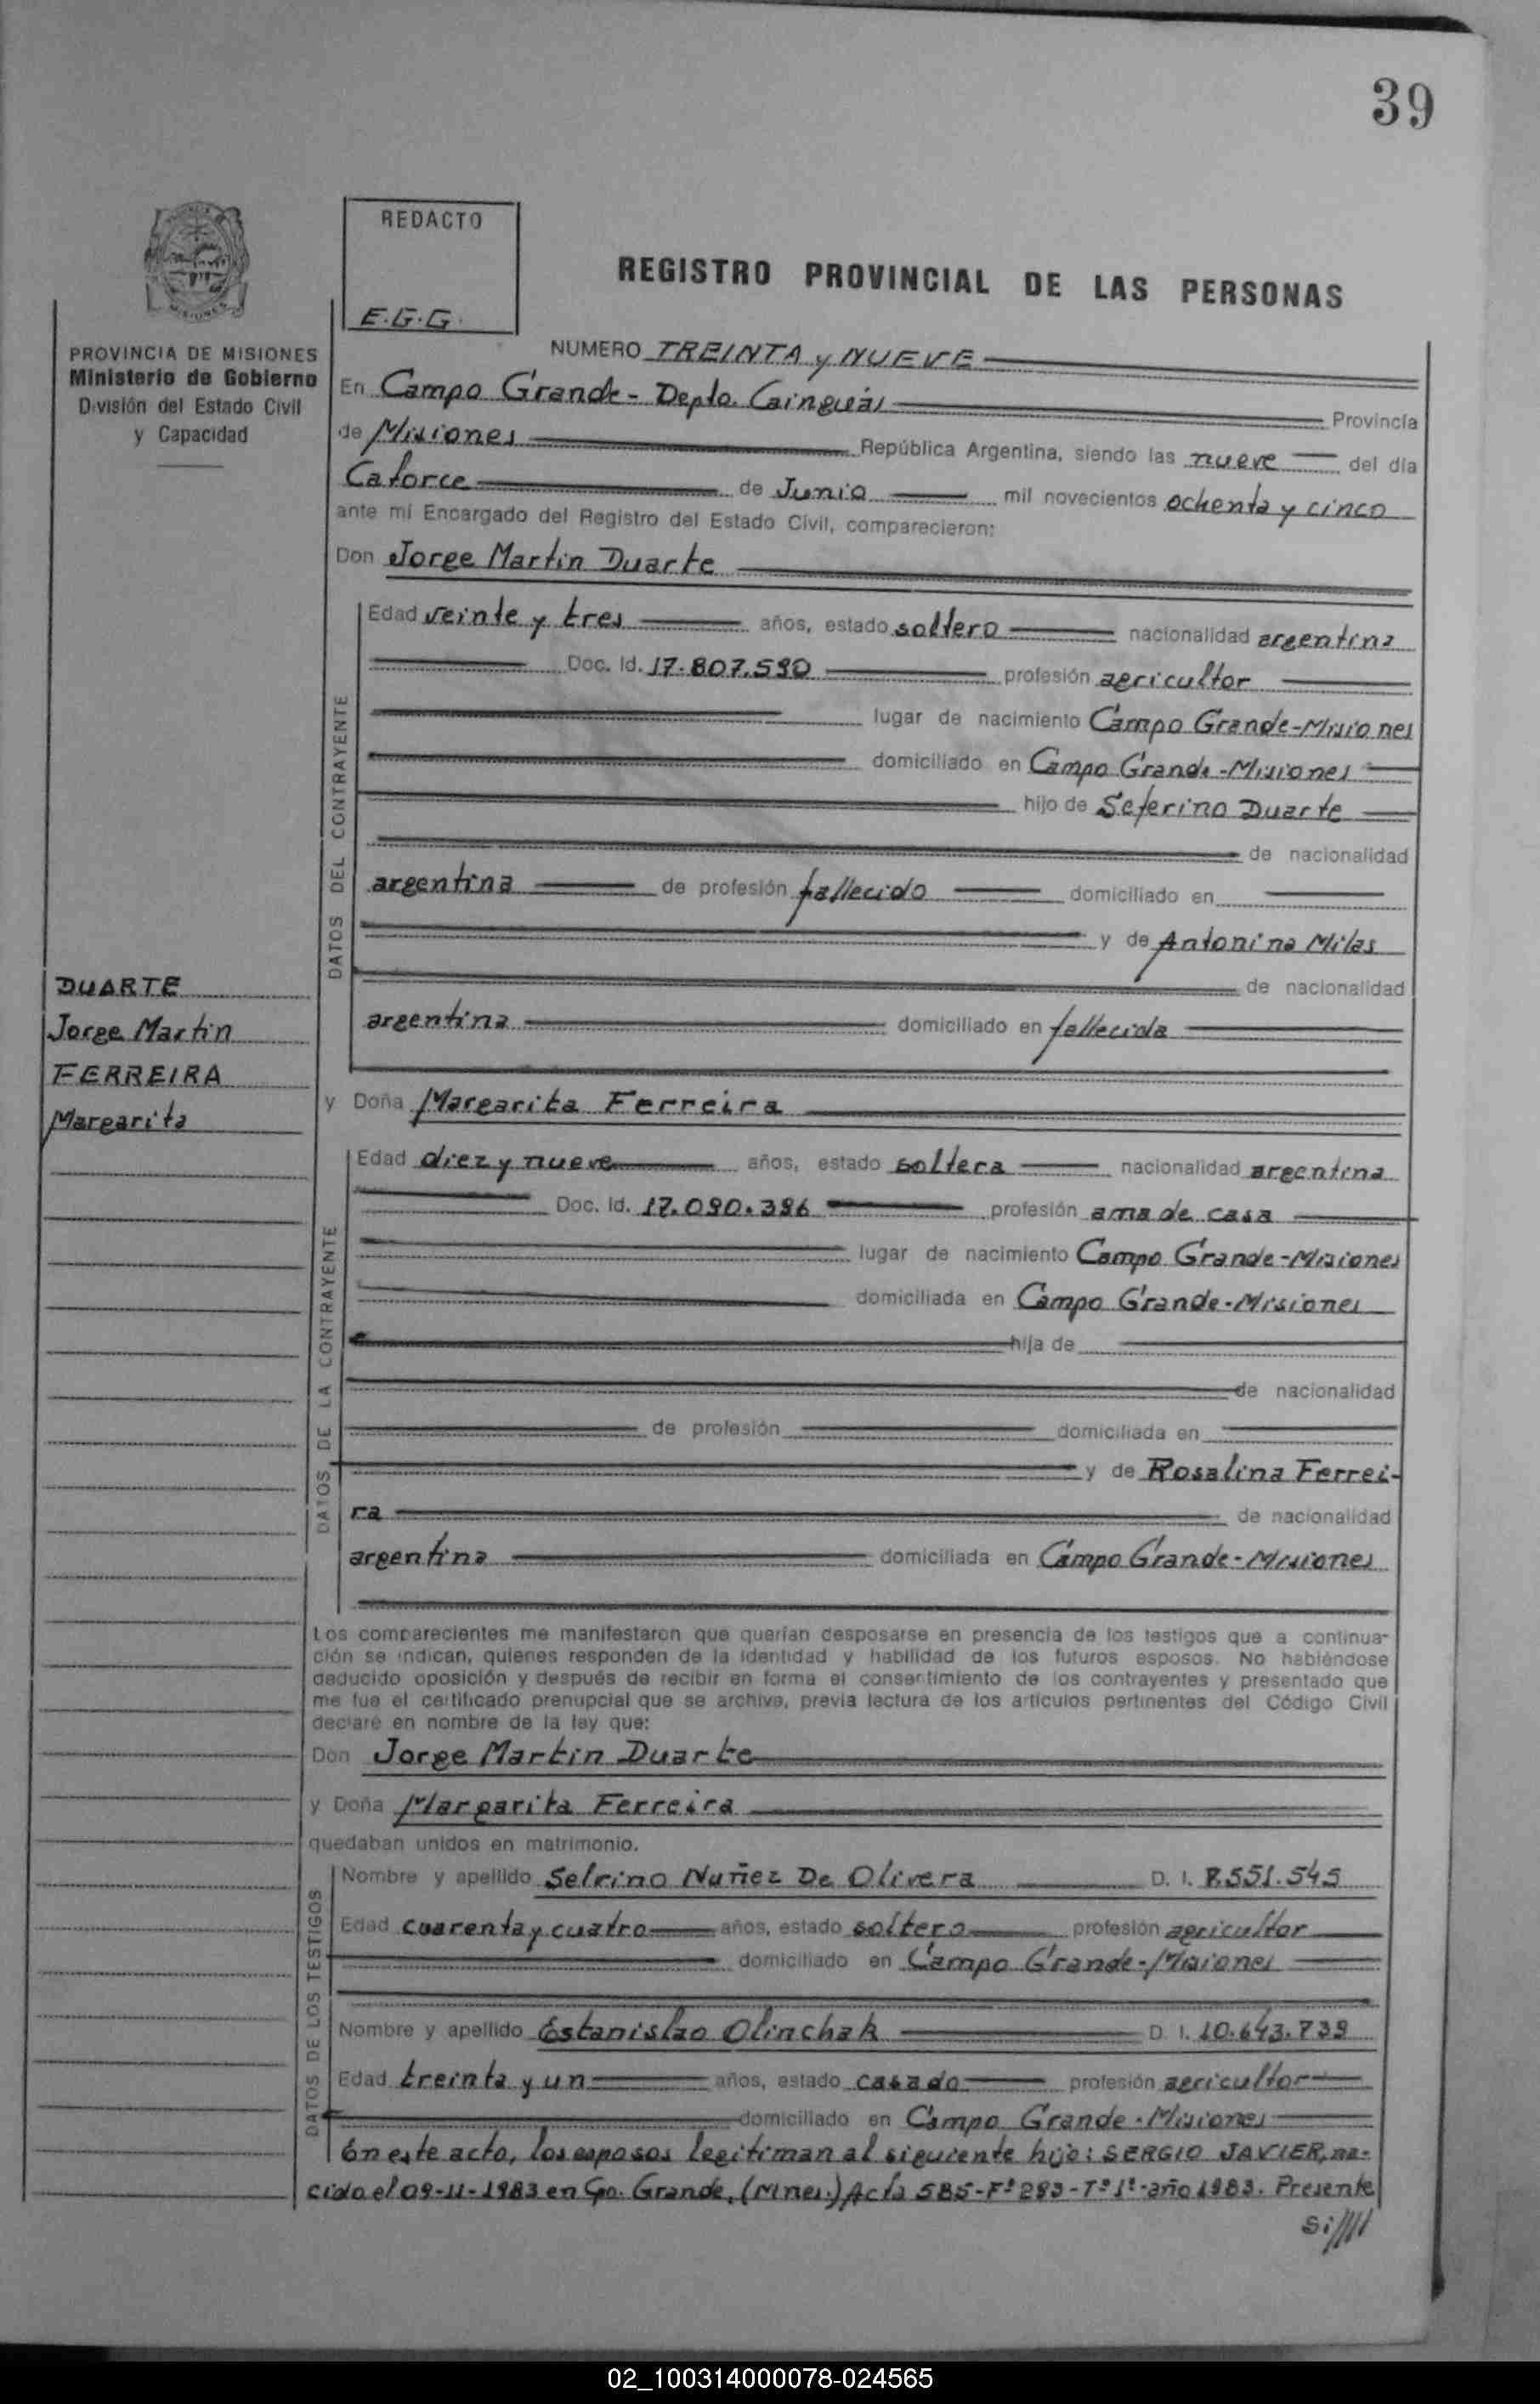 39
REDACTO
E.G.G.
REGISTRO PROVINCIAL DE LAS PERSONAS
PROVINCIA DE MISIONES
Ministerio de Gobierno
División del Estado Civil
y Capacidad
NUMERO TREINTA y NUEVE
En Campo Grande - Depto. Cainguás Provincia
de Misiones República Argentina, siendo las nueve del día
Catorce de Junio mil novecientos ochenta y cinco
ante mí Encargado del Registro del Estado Civil, comparecieron:
Don Jorge Martin Duarte
DATOS DEL CONTRAYENTE
Edad veinte y tres años, estado soltero nacionalidad argentina
Doc. Id. 17.807.590 profesión agricultor
lugar de nacimiento Campo Grande-Misiones
domiciliado en Campo Grande-Misiones
hijo de Seferino Duarte
de nacionalidad
argentina de profesión fallecido domiciliado en
y de Antonina Milas
de nacionalidad
argentina domiciliado en fallecida
DUARTE
Jorge Martin
FERREIRA
Margarita
y Doña Margarita Ferreira
DATOS DE LA CONTRAYENTE
Edad diez y nueve años, estado soltera nacionalidad argentina
Doc. Id. 17.090.396 profesión ama de casa
lugar de nacimiento Campo Grande-Misiones
domiciliada en Campo Grande-Misiones
hija de
de nacionalidad
de profesión domiciliada en
y de Rosalina Ferrei-
ra de nacionalidad
argentina domiciliada en Campo Grande-Misiones
Los comparecientes me manifestaron que querían desposarse en presencia de los testigos que a continua-
ción se indican, quienes responden de la identidad y habilidad de los futuros esposos. No habiéndose
deducido oposición y después de recibir en forma el consentimiento de los contrayentes y presentado que
me fue el certificado prenupcial que se archiva, previa lectura de los artículos pertinentes del Código Civil
declaré en nombre de la ley que:
Don Jorge Martin Duarte
y Doña Margarita Ferreira
quedaban unidos en matrimonio.
DATOS DE LOS TESTIGOS
Nombre y apellido Selrino Nuñez De Olivera D. I. 8.551.545
Edad cuarenta y cuatro años, estado soltero profesión agricultor
domiciliado en Campo Grande-Misiones
Nombre y apellido Estanislao Olinchak D. I. 10.643.739
Edad treinta y un años, estado casado profesión agricultor
domiciliado en Campo Grande-Misiones
En este acto, los esposos legitiman al siguiente hijo: SERGIO JAVIER, na-
cido el 09-11-1983 en Cpo. Grande, (Mnes.) Acta 585-Fº 293-Tº 1º-año 1983. Presente
si////
02_100314000078-024565